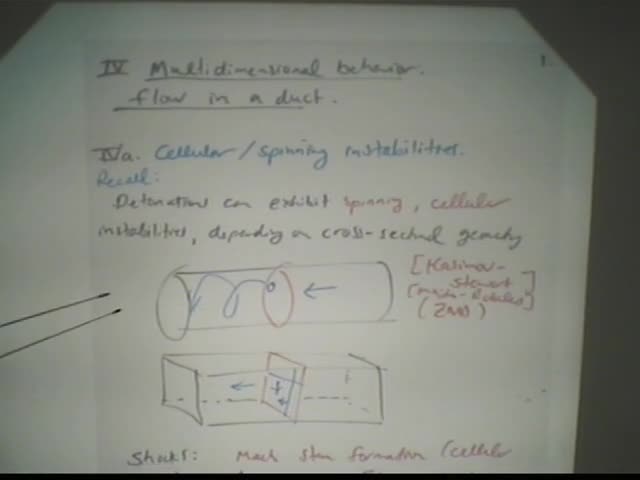 1.
IV Multidimensional behavior.
flow in a duct.
IVa. Cellular/spinning instabilities.
Recall:
Detonations can exhibit spinning, cellular
instabilities, depending on cross-sectional geometry
[Kasimov-
Stewart]
(ZND)
Shocks: Mach stem formation (cellular